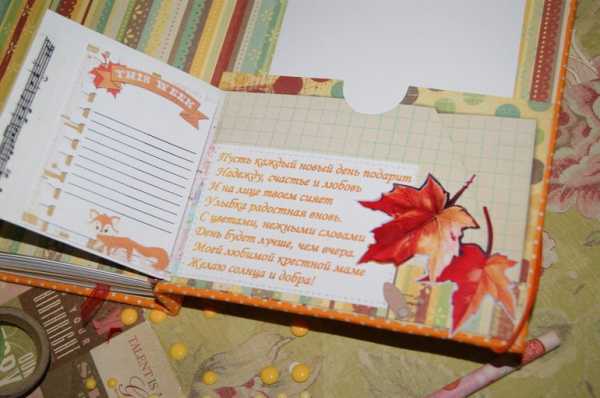 THIS WEEK
Пусть каждый новый день подарит
Надежду, счастье и любовь
И на лице твоем сияет
Улыбка радостная вновь.
С цветами, нежными словами
День будет лучше, чем вчера.
Моей любимой крестной маме
Желаю солнца и добра!
YOUR
BIRTHRIGHT
TALENT IS
OUR